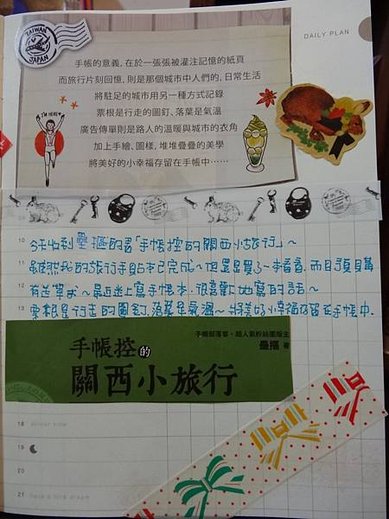 TAIWAN
JAPAN
DAILY PLAN
手帳的意義,在於一張張被灌注記憶的紙頁
而旅行片刻回憶,則是那個城市中人們的,日常生活
將駐足的城市用另一種方式記錄
票根是行走的圖釘、落葉是氣溫
廣告傳單則是路人的溫暖與城市的衣角
加上手繪、圖樣,堆堆疊疊的美學
將美好的小幸福存留在手帳中……
10
今天收到
的書「手帳控的關西小旅行」~
11
我的旅行手帖本已完成~但還是買了一本看看,而且預購
12
有送單成~最近迷上寫手帳本,很喜歡
地寫的話~
13
票根是行走的圖釘,落葉是氣溫~將美好小幸福存留在手帳中.
手帳控的
關西小旅行
18
19
20
21